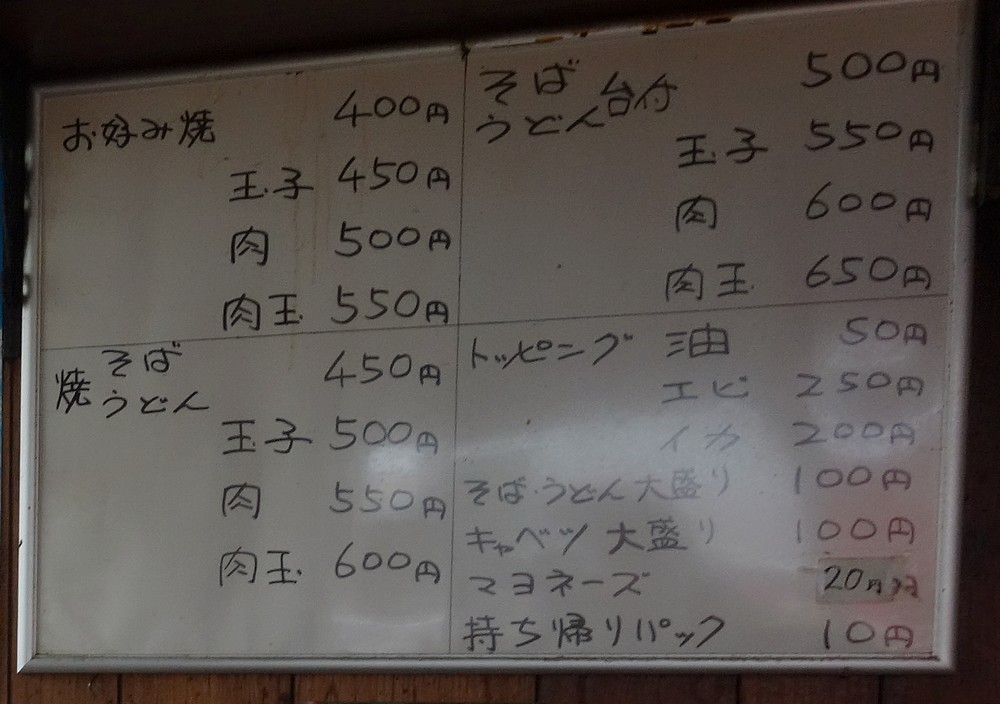 お好み焼 400円
玉子 450円
肉 500円
肉玉 550円
焼 そば うどん 450円
玉子 500円
肉 550円
肉玉 600円
そば うどん 台付 500円
玉子 550円
肉 600円
肉玉 650円
トッピング 油 50円
エビ 250円
イカ 200円
そば・うどん大盛り 100円
キャベツ大盛り 100円
マヨネーズ 20円
持ち帰りパック 10円